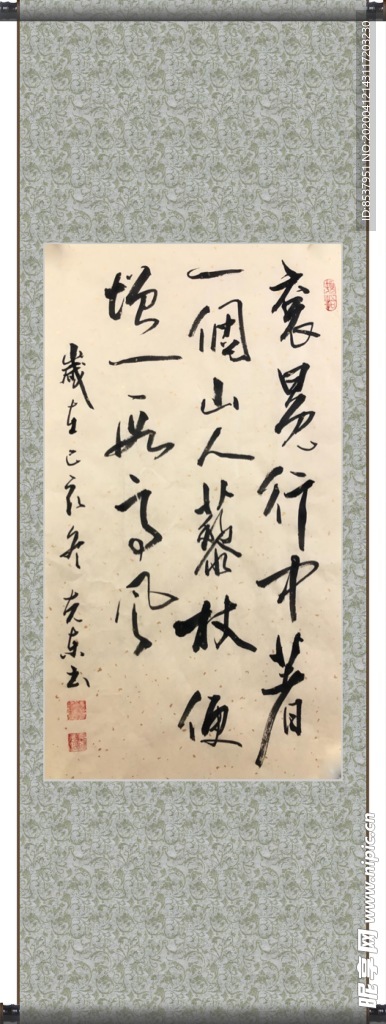 衮冕行中著
一個山人藜杖便
增一段高風
歲在己亥冬 克東书
ID:8537951 NO:20200412143117203230
昵享网 www.nipic.cn